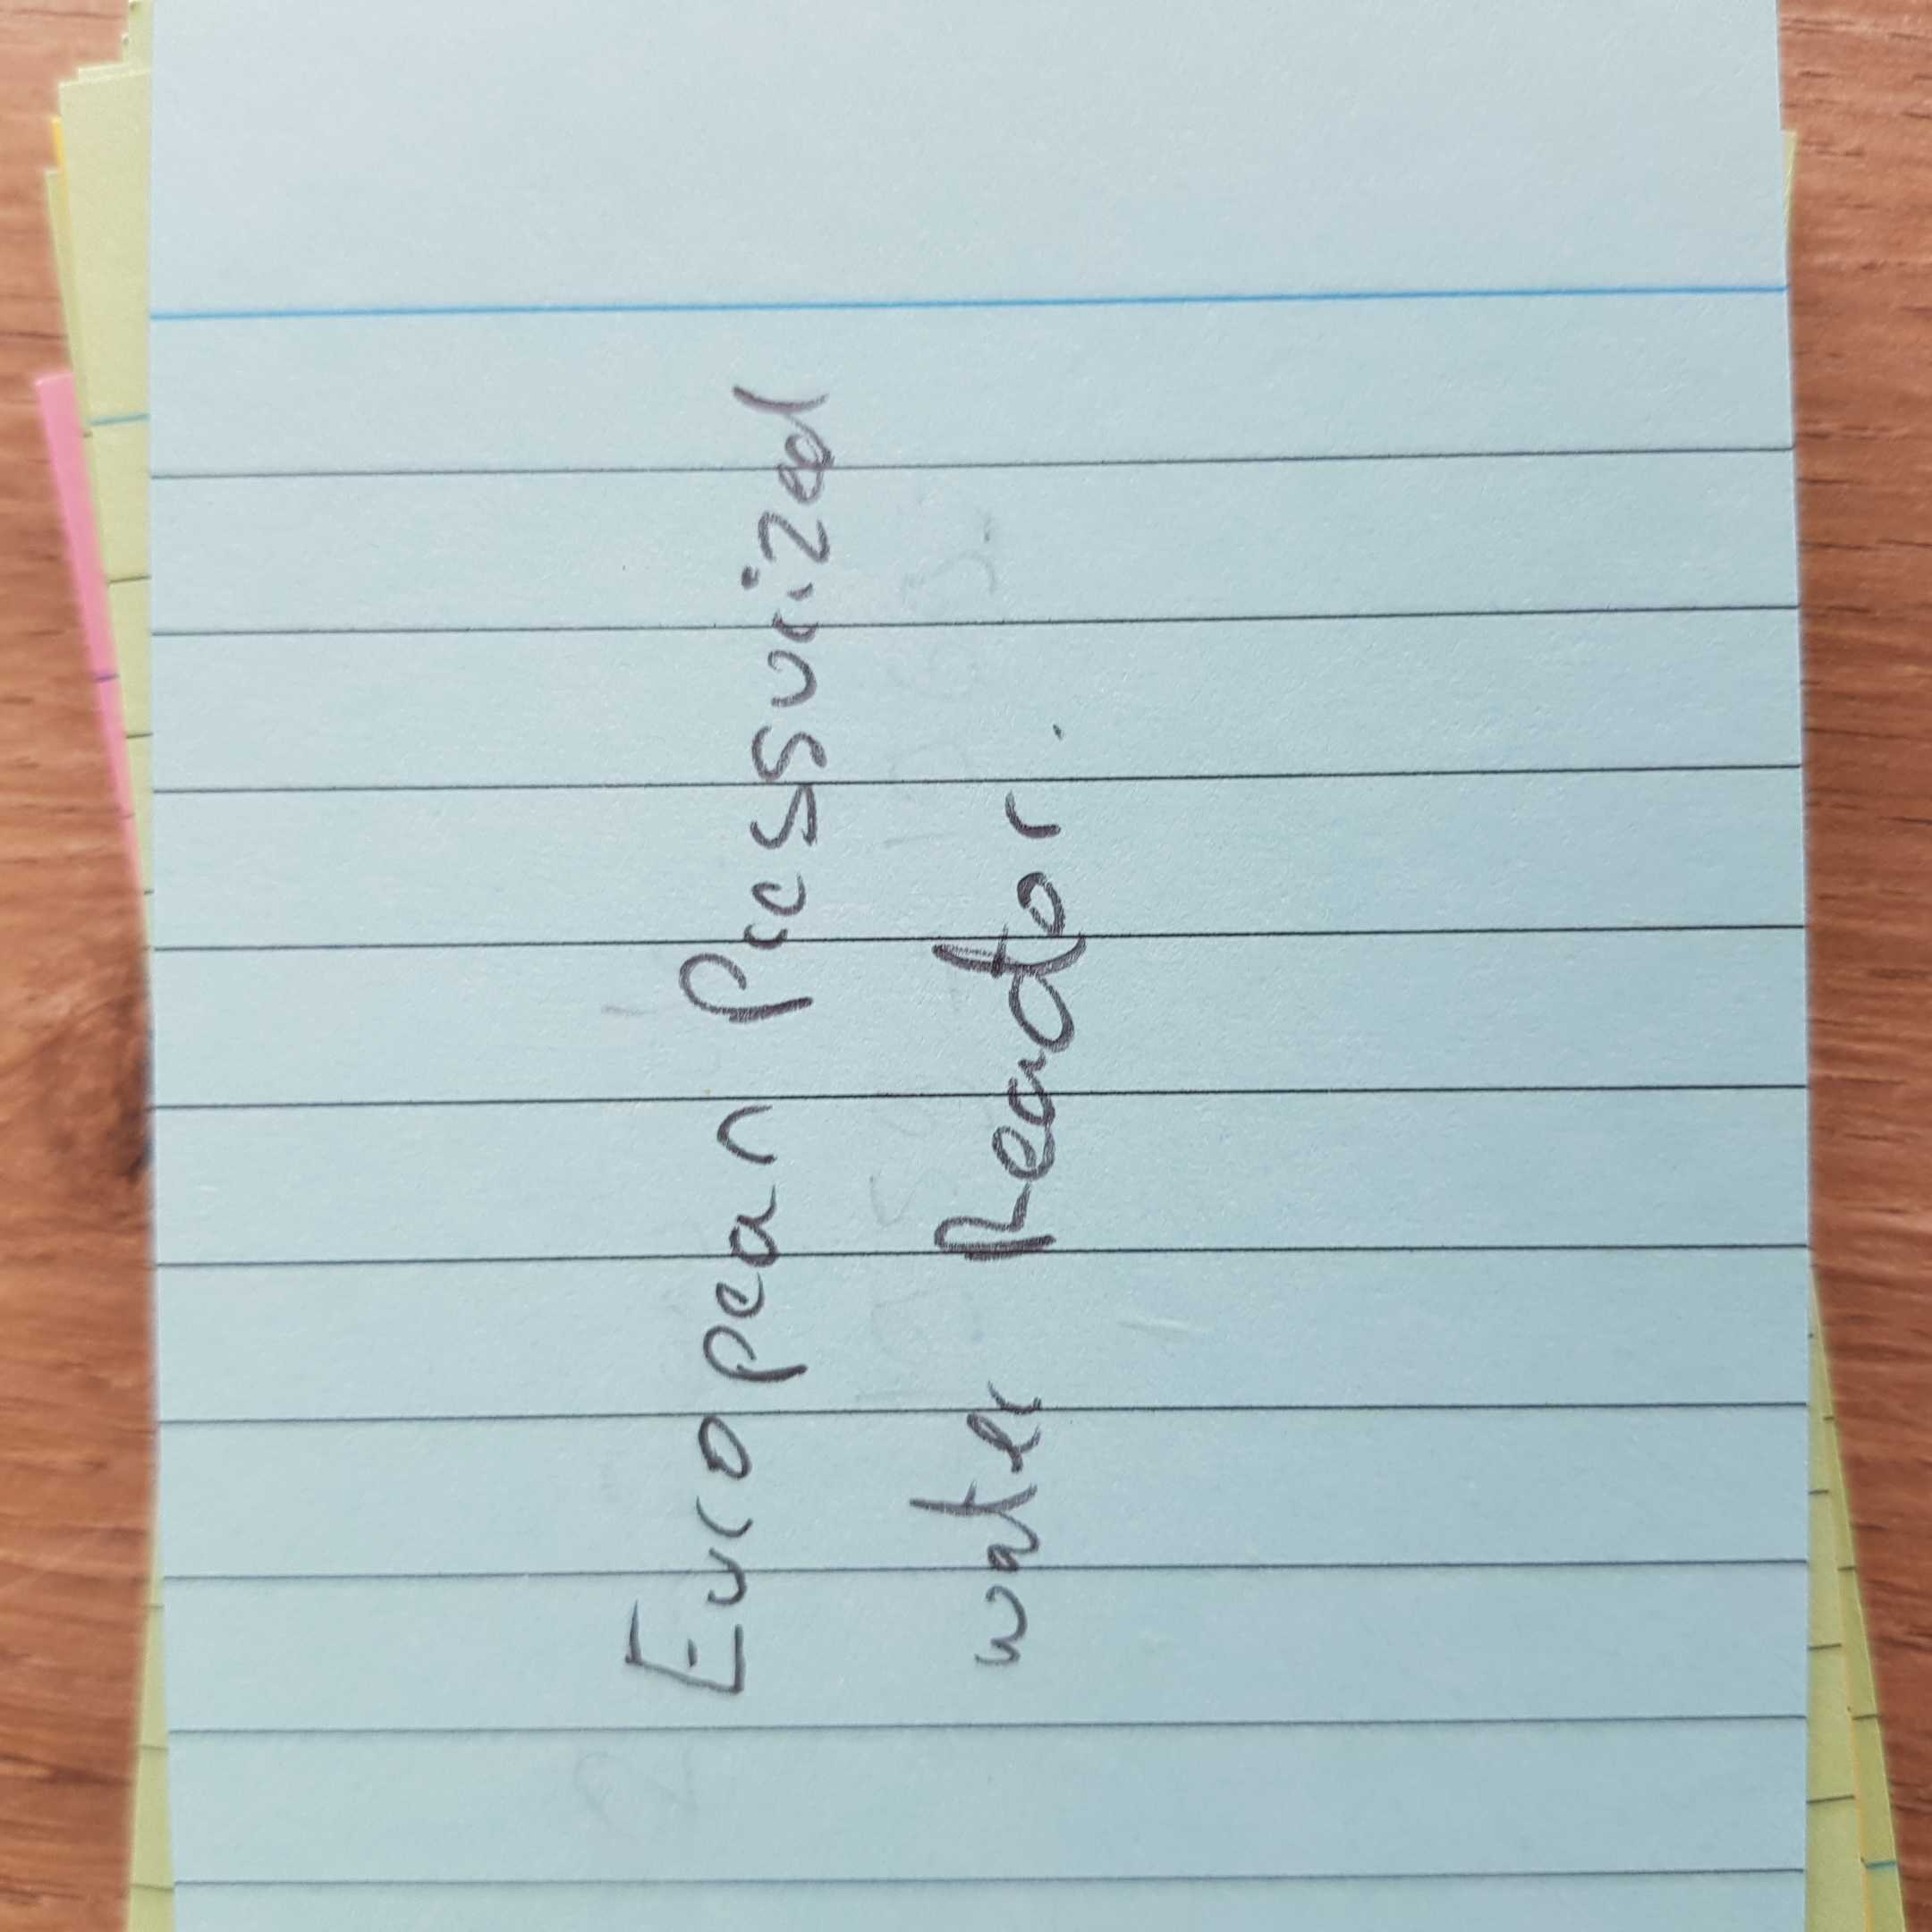 European Pressurized
water Reactor.